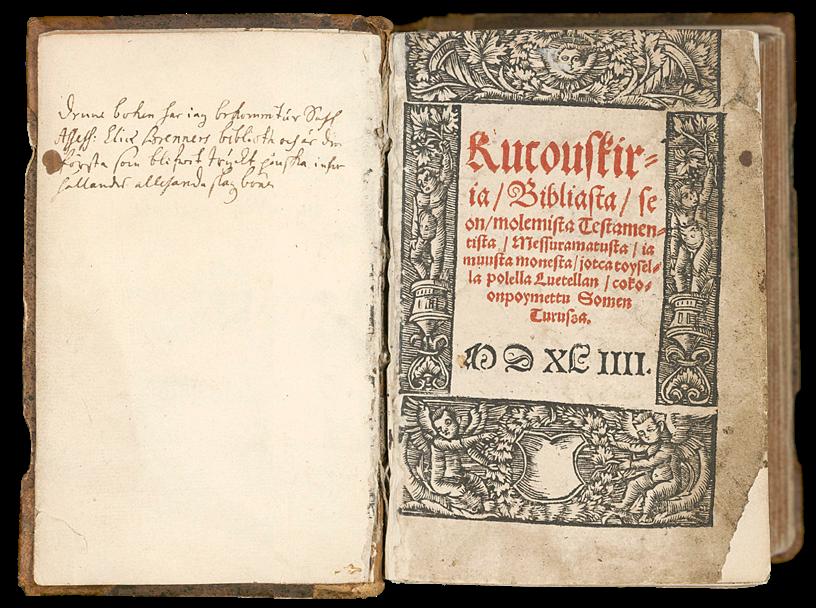 Denne boken har iag bekommit ur Sahl
Assess: Elias Brenners biblioth och är den
första som blifwit tryckt finska inne
hållandes allehanda slag böner
Rucouskir⸗
ia / Bibliasta / se
on / molemista Testamen⸗
tista / Messuramatusta / ia
muusta monesta / jotca toysel⸗
la polella Luetellan / coko⸗
onpoymettu Somen
Turusza.
M D XL IIII.